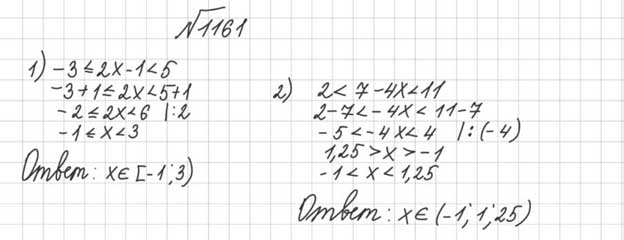 √1161
1) -3 ≤ 2x - 1 < 5
-3+1 ≤ 2x < 5+1
-2 ≤ 2x < 6 |:2
-1 ≤ x < 3
Ответ: x ∈ [-1; 3)
2) 2 < 7 - 4x < 11
2-7 < -4x < 11-7
-5 < -4x < 4 |:(-4)
1,25 > x > -1
-1 < x < 1,25
Ответ: x ∈ (-1; 1;25)